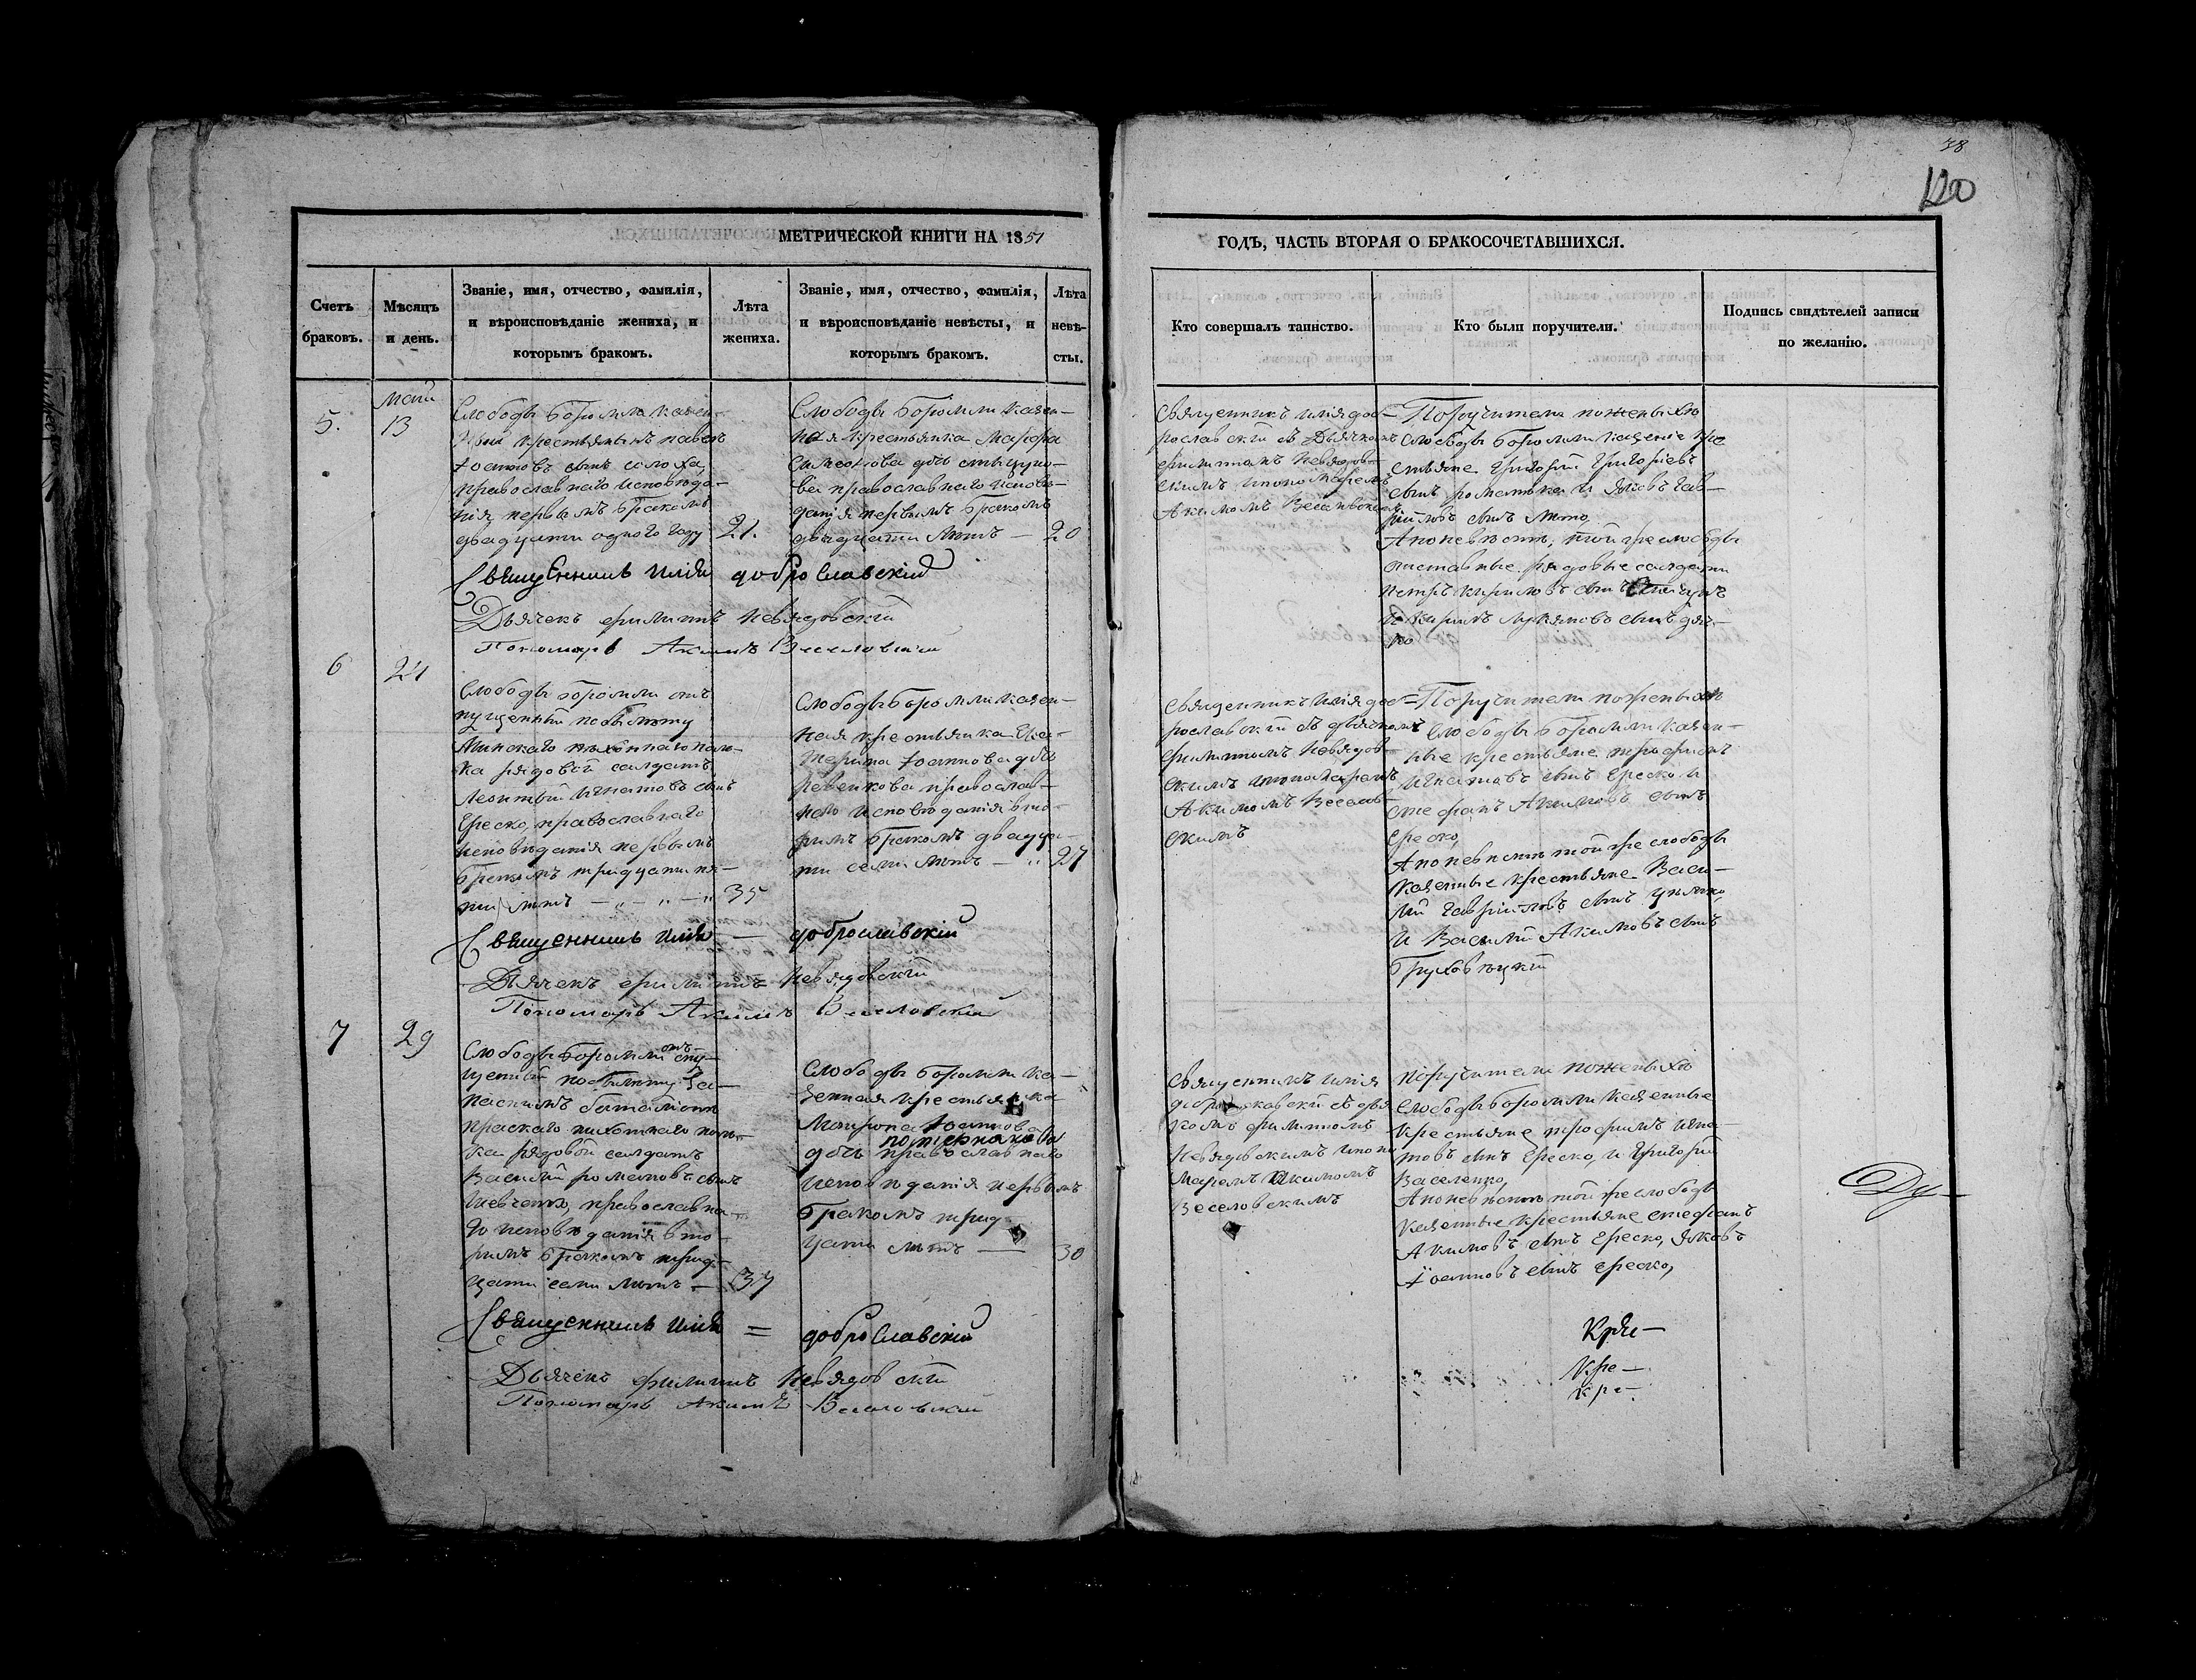 38
120
МЕТРИЧЕСКОЙ КНИГИ НА 1851
ГОДЪ, ЧАСТЬ ВТОРАЯ О БРАКОСОЧЕТАВШИХСЯ.
Счетъ
браковъ.
Мѣсяцъ
и день.
Званіе, имя, отчество, фамилія,
и вѣроисповѣданіе жениха, и
которымъ бракомъ.
Лѣта
жениха.
Званіе, имя, отчество, фамилія,
и вѣроисповѣданіе невѣсты, и
которымъ бракомъ.
Лѣта
невѣ-
сты.
Кто совершалъ таинство.
Кто были поручители.
Подпись свидѣтелей записи
по желанію.
5.
Маій
13
Слободы Боромли казен-
ный крестьянинъ павелъ
Іоанновъ сынъ солоха,
православнаго исповѣда-
нія, первымъ бракомъ
двадцати одного году
21.
Слободы Боромли казен-
ная крестьянка Марфа
Симеонова дочь
ва православнаго исповѣ-
данія первымъ бракомъ
двадцати лѣтъ —
20
Священникъ илія доб-
рославскій съ Дьячкомъ
филиппомъ Невядов-
скимъ и пономаремъ
Акимомъ Веселовскимъ
Поручители по женихѣ
слободы Боромли казеніе кре
стьяне Григорій Григоріевъ
сынъ и Яковъ Гав-
ріиловъ сынъ
А по невѣстѣ, той же слободы
отставные рядовые солдаты
петръ кириловъ сынъ
и кирилъ лукяновъ сынъ дяч-
ко
Священникъ Илія доброславскій
Дьячекъ филиппъ Невядовскій
Пономарь Акимъ Веселовскій
6
24
Слободы Боромли отъ
пущенный по билету
Минскаго пѣхотнаго пол-
ка рядовой салдатъ
Леонтій Игнатовъ сынъ
Ереско, православнаго
исповѣданія первымъ
бракомъ тридцати пя-
ти лѣтъ — „ — „ — „
35
Слободы Боромли казен-
ная крестьянка Ека-
терина Іоаннова дочь
Ревенкова православ-
наго исповѣданія вто-
римъ бракомъ двадца-
ти семи лѣтъ — „
27
Священникъ илія доб-
рославскій съ дьячкомъ
филиппомъ Невядов-
скимъ и пономаремъ
Акимомъ Веселов-
скимъ
Поручители по женихѣ
Слободы Боромли казен-
ные крестьяне трофимъ
Игнатовъ сынъ Ереско и
стефанъ Акимовъ сынъ
Ереско,
А по невѣстѣ той же слободы
казенные крестьяне Васи-
лій Гавріиловъ сынъ
и Василій Акимовъ сынъ
Священникъ Илія — доброславскій
Дьячекъ филиппъ Невядовскій
Пономарь Акимъ Веселовскій
7
29
Слободы Боромли отъ
пу-
щеный по билету За-
паснымъ баталіономъ
пѣхотнаго пол-
ка рядовой салдатъ
Василій романовъ сынъ
Шевченко, православна-
го исповѣданія вто-
римъ бракомъ трид-
цати семи лѣтъ —
37
Слободы Боромли ка-
зенная крестьянка
Іоаннова
дочь православнаго
исповѣданія первымъ
бракомъ трид-
цати лѣтъ —
30
Священникъ илія
доброславскій съ дья
комъ филиппомъ
Невядовскимъ и поно
маремъ Акимомъ
Веселовскимъ
Поручители по женихѣ
слободы Боромли казенные
крестьяне трофимъ Игна-
товъ сынъ Ереско, и Григорій
Василенко,
А по невѣстѣ той же слободы
казенные крестьяне стефанъ
Акимовъ сынъ Ереско, Яковъ
Іоанновъ сынъ Ереско,
Священникъ Илія = доброславскій
Дьячекъ филиппъ Невядовскій
Пономарь Акимъ Веселовскій
Ду-
Кре-
Кре-